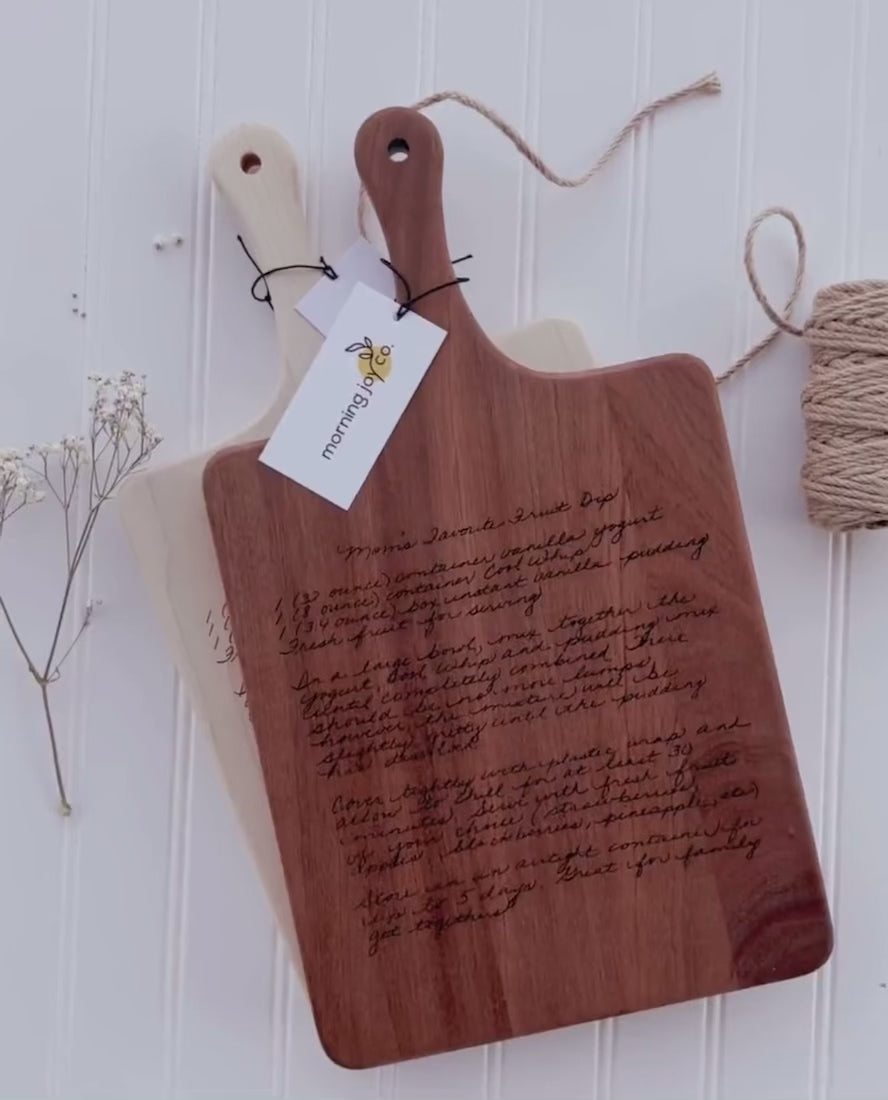 morning joy co.
Mom's Favorite Fruit Dip
1 (32 ounce) container vanilla yogurt
1 (8 ounce) container Cool Whip
1 (3.4 ounce) box instant vanilla pudding
Fresh fruit for serving
In a large bowl, mix together the
yogurt, Cool Whip and pudding mix
until completely combined. There
should be no more lumps,
however, the mixture will be
slightly gritty until the pudding
has dissolved.
Cover tightly with plastic wrap and
allow to chill for at least 30
minutes. Serve with fresh fruits
of your choice (strawberries,
apples, blackberries, pineapple, etc)
Store in an airtight container for
up to 5 days. Great for family
get togethers!